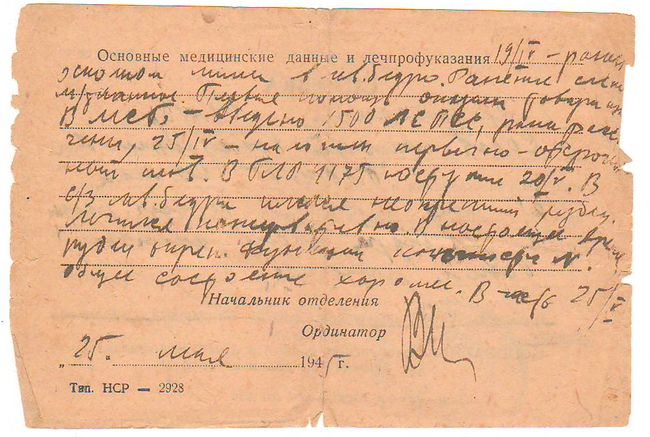 Основные медицинские данные и лечпрофуказания 19/IV – ранен
осколком мины в лев. бедро. Ранение слепое
Первая помощь оказана
В МСБ – введено 1500 АЕ ПСС, рана рассе-
чена, 25/IV – наложен первично-отсрочен-
ный шов. В 1175 20/V. В
с/з лев. бедра имелся неокрепший рубец.
Лечился консервативно. В настоящее время
рубец окреп. Функция конечности N.
Общее состояние хорошее. В часть 25/V
Начальник отделения
Ординатор
„ 25. мая 1945 г.
Тип. НСР — 2928